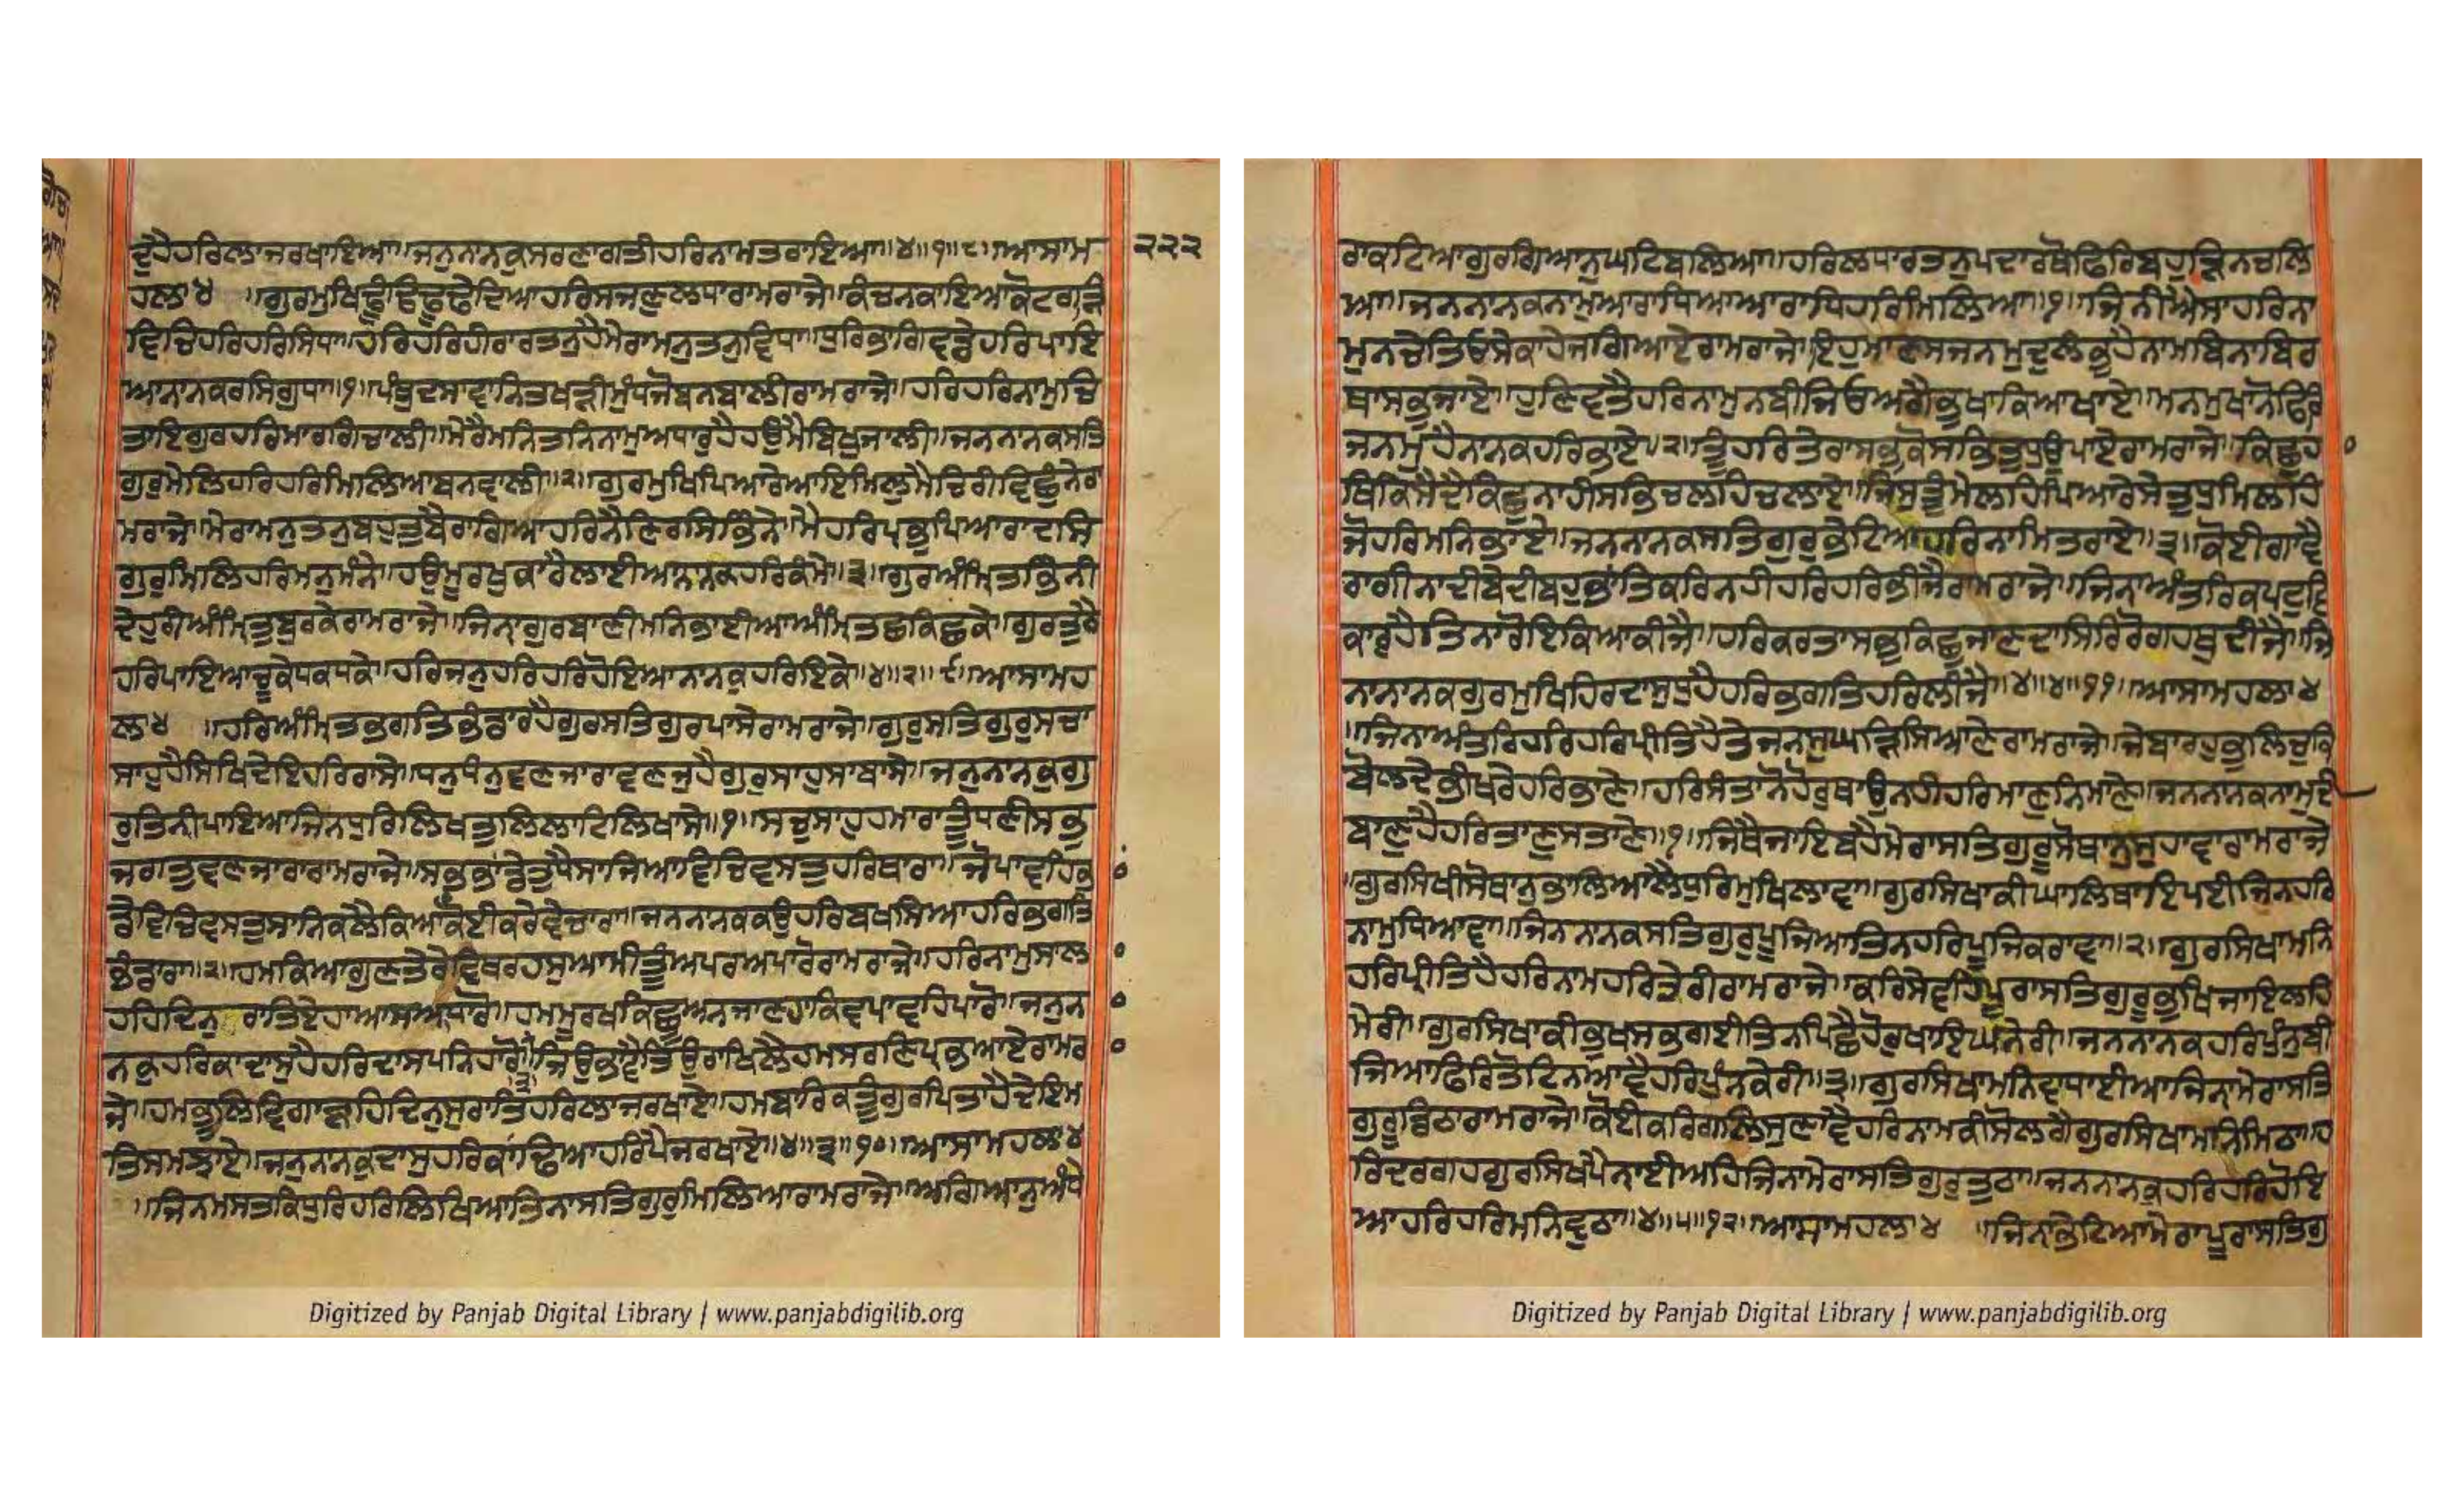 ਦੁਹੈਹਰਿਲਾਜਰਖਾਇਆ॥ਜਨੁਨਾਨਕੁਸਰਣਾਗਤੀਹਰਿਨਾਮਤਰਾਇਆ॥੪॥੧॥੮॥ਆਸਾਮ
੨੨੨
ਹਲਾ੪ ॥ਗੁਰਮੁਖਿਢੂੰਢਿਢੂਢੇਦਿਆਹਰਿਸਜਣੁਲਧਾਰਾਮਰਾਜੇ॥ਕੰਚਨਕਾਇਆਕੋਟਗੜ
ਵਿਚਿਹਰਿਹਰਿਸਿਧਾ॥ਹਰਿਹਰਿਹੀਰਾਰਤਨੁਹੈਮੇਰਾਮਨੁਤਨੁਵਿਧਾ॥ਧੁਰਿਭਾਗਵਡੇਹਰਿਪਾਇ
ਆਨਾਨਕਰਸਿਗੁਧਾ॥੧॥ਪੰਥੁਦਸਾਵਾਨਿਤਖੜੀਮੁੰਧਜੋਬਨਬਾਲੀਰਾਮਰਾਜੇ॥ਹਰਿਹਰਿਨਾਮੁਚਿ
ਤਾਇਗੁਰਹਰਿਮਾਰਗਿਚਾਲੀ॥ਮੇਰੈਮਨਿਤਨਿਨਾਮੁਅਧਾਰੁਹੈਹਉਮੈਬਿਖੁਜਾਲੀ॥ਜਨਨਾਨਕਸਤਿ
ਗੁਰੁਮੇਲਿਹਰਿਹਰਿਮਿਲਿਆਬਨਵਾਲੀ॥੨॥ਗੁਰਮੁਖਿਪਿਆਰੇਆਇਮਿਲੁਮੈਚਿਰੀਵਿਛੁੰਨੇਰਾ
ਮਰਾਜੇ॥ਮੇਰਾਮਨੁਤਨੁਬਹੁਤੁਬੈਰਾਗਿਆਹਰਿਨੈਣਿਰਸਿਭਿੰਨੇ॥ਮੈਹਰਿਪ੍ਰਭੁਪਿਆਰਾਦਸਿ
ਗੁਰੁਮਿਲਿਹਰਿਮਨੁਮੰਨੇ॥ਹਉਮੂਰਖੁਕਾਰੈਲਾਈਆਨਾਨਕਹਰਿਕੰਮੇ॥੩॥ਗੁਰਅੰਮ੍ਰਿਤਭਿੰਨੀ
ਦੇਹੁਰੀਅੰਮ੍ਰਿਤੁਬੁਰਕੇਰਾਮਰਾਜੇ॥ਜਿਨਾਗੁਰਬਾਣੀਮਨਿਭਾਈਆਅੰਮ੍ਰਿਤਛਕਿਛਕੇ॥ਗੁਰਤੁਠੈ
ਹਰਿਪਾਇਆਚੂਕੇਧਕਧਕੇ॥ਹਰਿਜਨੁਹਰਿਹਰਿਹੋਇਆਨਾਨਕੁਹਰਿਇਕੇ॥੪॥੨॥੯॥ਆਸਾਮਹ
ਲਾ੪ ॥ਹਰਿਅੰਮ੍ਰਿਤਭਗਤਿਭੰਡਾਰਹੈਗੁਰਸਤਿਗੁਰਪਾਸੇਰਾਮਰਾਜੇ॥ਗੁਰੁਸਤਿਗੁਰੁਸਚਾ
ਸਾਹੁਹੈਸਿਖਿਦੇਇਹਰਿਰਾਸੇ॥ਧਨੁਧੰਨੁਵਣਜਾਰਾਵਣਜੁਹੈਗੁਰੁਸਾਹੁਸਾਬਾਸੇ॥ਜਨੁਨਾਨਕੁਗੁ
ਰੁਤਿਨੀਪਾਇਆਜਿਨਧੁਰਿਲਿਖਤੁਲਿਲਾਟਿਲਿਖਾਸੇ॥੧॥ਸਚੁਸਾਹੁਹਮਾਰਾਤੂੰਧਣੀਸਭੁ
ਜਗਤੁਵਣਜਾਰਾਰਾਮਰਾਜੇ॥ਸਭਭਾਂਡੇਤੁਧੈਸਾਜਿਆਵਿਚਿਵਸਤੁਹਰਿਥਾਰਾ॥ਜੋਪਾਵਹਿਭਾਂ
ਡੇਵਿਚਿਵਸਤੁਸਾਨਿਕਲੈਕਿਆਕੋਈਕਰੇਵੇਚਾਰਾ॥ਜਨਨਾਨਕਕਉਹਰਿਬਖਸਿਆਹਰਿਭਗਤਿ
ਭੰਡਾਰਾ॥੨॥ਹਮਕਿਆਗੁਣਤੇਰੇਵਿਥਰਹਸੁਆਮੀਤੂੰਅਪਰਅਪਾਰੋਰਾਮਰਾਜੇ॥ਹਰਿਨਾਮੁਸਾਲ
ਹਹਿਦਿਨੁ ਰਾਤਿਏਹਾਆਸਆਧਾਰੋ॥ਹਮਮੂਰਖਕਿਛੂਅਨਜਾਣਹਾਕਿਵਪਾਵਹਿਪਾਰੋ॥ਜਨੁਨ
ਨਕੁਹਰਿਕਾਦਾਸੁਹੈਹਰਿਦਾਸਪਨਿਹਾਰੋ॥੩॥ਜਿਉਭਾਵੈਤਿਉਰਾਖਿਲੈਹਮਸਰਣਿਪ੍ਰਭਆਏਰਾਮਰ
ਜੇ॥ਹਮਭੂਲਿਵਿਗਾੜਹਿਦਿਨੁਸੁਰਾਤਿਹਰਿਲਾਜਰਖਾਏ॥ਹਮਬਾਰਿਕਤੂੰਗੁਰਪਿਤਾਹੈਦੇਇਮ
ਤਿਸਮਝਾਏ॥ਜਨੁਨਾਨਕੁਦਾਸੁਹਰਿਕਾਂਢਿਆਹਰਿਪੈਜਰਖਾਏ॥੪॥੩॥੧੦॥ਆਸਾਮਹਲਾ੪
॥ਜਿਨਮਸਤਕਿਧੁਰਿਹਰਿਲਿਖਿਆਤਿਨਾਸਤਿਗੁਰੁਮਿਲਿਆਰਾਮਰਾਜੇ॥ਅਗਿਆਨੁਅੰਧੇ
Digitized by Panjab Digital Library | www.panjabdigilib.org
ਰਾਕਟਿਆਗੁਰਗਿਆਨੁਘਟਿਬਲਿਆ॥ਹਰਿਲਧਾਰਤਨੁਪਦਾਰਥੋਫਿਰਿਬਹੁੜਿਨਚਲਿ
ਆ॥ਜਨਨਾਨਕਨਾਮੁਆਰਾਧਿਆਆਰਾਧਿਹਰਿਮਿਲਿਆ॥੧॥ਜਿਨੀਐਸਾਹਰਿਨਾ
ਮੁਨਚੇਤਿਓਸੇਕਾਹੇਜਗਿਆਏਰਾਮਰਾਜੇ॥ਇਹੁਮਾਣਸਜਨਮੁਦੁਲੰਭੁਹੈਨਾਮਬਿਨਾਬਿਰ
ਥਾਸਭੁਜਾਏ॥ਹੁਣਿਵਤੈਹਰਿਨਾਮੁਨਬੀਜਿਓਅਗੈਭੁਖਾਕਿਆਖਾਏ॥ਮਨਮੁਖਾਨੋਫਿਰਿ
ਜਨਮੁਹੈਨਾਨਕਹਰਿਭਾਏ॥੨॥ਤੂੰਹਰਿਤੇਰਾਸਭੁਕੋਸਭਿਤੁਧੁਉਪਾਏਰਾਮਰਾਜੇ॥ਕਿਛੁਹ
ਥਿਕਿਸੈਦੈਕਿਛੁਨਾਹੀਸਭਿਚਲਹਿਚਲਾਏ॥ਜਿਸਤੂੰਮੇਲਹਿਪਿਆਰੇਸੇਤੁਧੁਮਿਲਹਿ
ਜੋਹਰਿਮਨਿਭਾਏ॥ਜਨਨਾਨਕਸਤਿਗੁਰੁਭੇਟਿਆਹਰਿਨਾਮਿਤਰਾਏ॥੩॥ਕੋਈਗਾਵੈ
ਰਾਗੀਨਾਦੀਬੇਦੀਬਹੁਭਾਤਿਕਰਿਨਹੀਹਰਿਹਰਿਭੀਜੈਰਾਮਰਾਜੇ॥ਜਿਨਾਅੰਤਰਿਕਪਟੁਵਿ
ਕਾਰੁਹੈਤਿਨਾਰੋਇਕਿਆਕੀਜੈ॥ਹਰਿਕਰਤਾਸਭੁਕਿਛੁਜਾਣਦਾਸਿਰਿਰੋਗਹਥੁਦੀਜੈ॥ਜਿ
ਨਾਨਾਨਕਗੁਰਮੁਖਿਹਿਰਦਾਸੁਧੁਹੈਹਰਿਭਗਤਿਹਰਿਲੀਜੈ॥੪॥੪॥੧੧॥ਆਸਾਮਹਲਾ੪
॥ਜਿਨਾਅੰਤਰਿਹਰਿਹਰਿਪ੍ਰੀਤਿਹੈਤੇਜਨਸੁਘੜਸਿਆਣੇਰਾਮਰਾਜੇ॥ਜੇਬਾਹਰਹੁਭੁਲਿਚੁਕਿ
ਬੋਲਦੇਭੀਖਰੇਹਰਿਭਾਣੇ॥ਹਰਿਸੰਤਾਨੋਹੋਰੁਥਾਉਨਹੀਹਰਿਮਾਣੁਨਿਮਾਣੇ॥ਜਨਨਾਨਕਨਾਮੁਦੀ
ਬਾਣੁਹੈਹਰਿਤਾਣੁਸਤਾਣੇ॥੧॥ਜਿਥੈਜਾਇਬਹੈਮੇਰਾਸਤਿਗੁਰੂਸੋਥਾਨੁਸੁਹਾਵਾਰਾਮਰਾਜੇ
॥ਗੁਰਸਿਖੀਸੋਥਾਨੁਭਾਲਿਆਲੈਧੂਰਿਮੁਖਿਲਾਵਾ॥ਗੁਰਸਿਖਾਕੀਘਾਲਥਾਇਪਈਜਿਨਹਰਿ
ਨਾਮੁਧਿਆਵਾ॥ਜਿਨਨਾਨਕਸਤਿਗੁਰੁਪੂਜਿਆਤਿਨਹਰਿਪੂਜਕਰਾਵਾ॥੨॥ਗੁਰਸਿਖਾਮਨਿ
ਹਰਿਪ੍ਰੀਤਿਹੈਹਰਿਨਾਮਹਰਿਤੇਰੀਰਾਮਰਾਜੇ॥ਕਰਿਸੇਵਹਿਪੂਰਾਸਤਿਗੁਰੂਭੁਖਜਾਇਲਹਿ
ਮੇਰੀ॥ਗੁਰਸਿਖਾਕੀਭੁਖਸਭਗਈਤਿਨਪਿਛੈਹੋਰਖਾਇਘਨੇਰੀ॥ਜਨਨਾਨਕਹਰਿਪੁੰਨੁਬੀ
ਜਿਆਫਿਰਿਤੋਟਿਨਆਵੈਹਰਿਪੁੰਨਕੇਰੀ॥੩॥ਗੁਰਸਿਖਾਮਨਿਵਾਧਾਈਆਜਿਨਮੇਰਾਸਤਿ
ਗੁਰੂਡਿਠਾਰਾਮਰਾਜੇ॥ਕੋਈਕਰਿਗਲਸੁਣਾਵੈਹਰਿਨਾਮਕੀਸੋਲਗੈਗੁਰਸਿਖਾਮਨਿਮਿਠਾ॥ਹ
ਰਿਦਰਗਹਗੁਰਸਿਖਪੈਨਾਈਅਹਿਜਿਨਾਮੇਰਾਸਤਿਗੁਰੁਤੁਠਾ॥ਜਨਨਾਨਕੁਹਰਿਹਰਿਹੋਇ
ਆਹਰਿਹਰਿਮਨਿਵੁਠਾ॥੪॥੫॥੧੨॥ਆਸਾਮਹਲਾ੪ ॥ਜਿਨਾਭੇਟਿਆਮੇਰਾਪੂਰਾਸਤਿਗੁ
Digitized by Panjab Digital Library | www.panjabdigilib.org